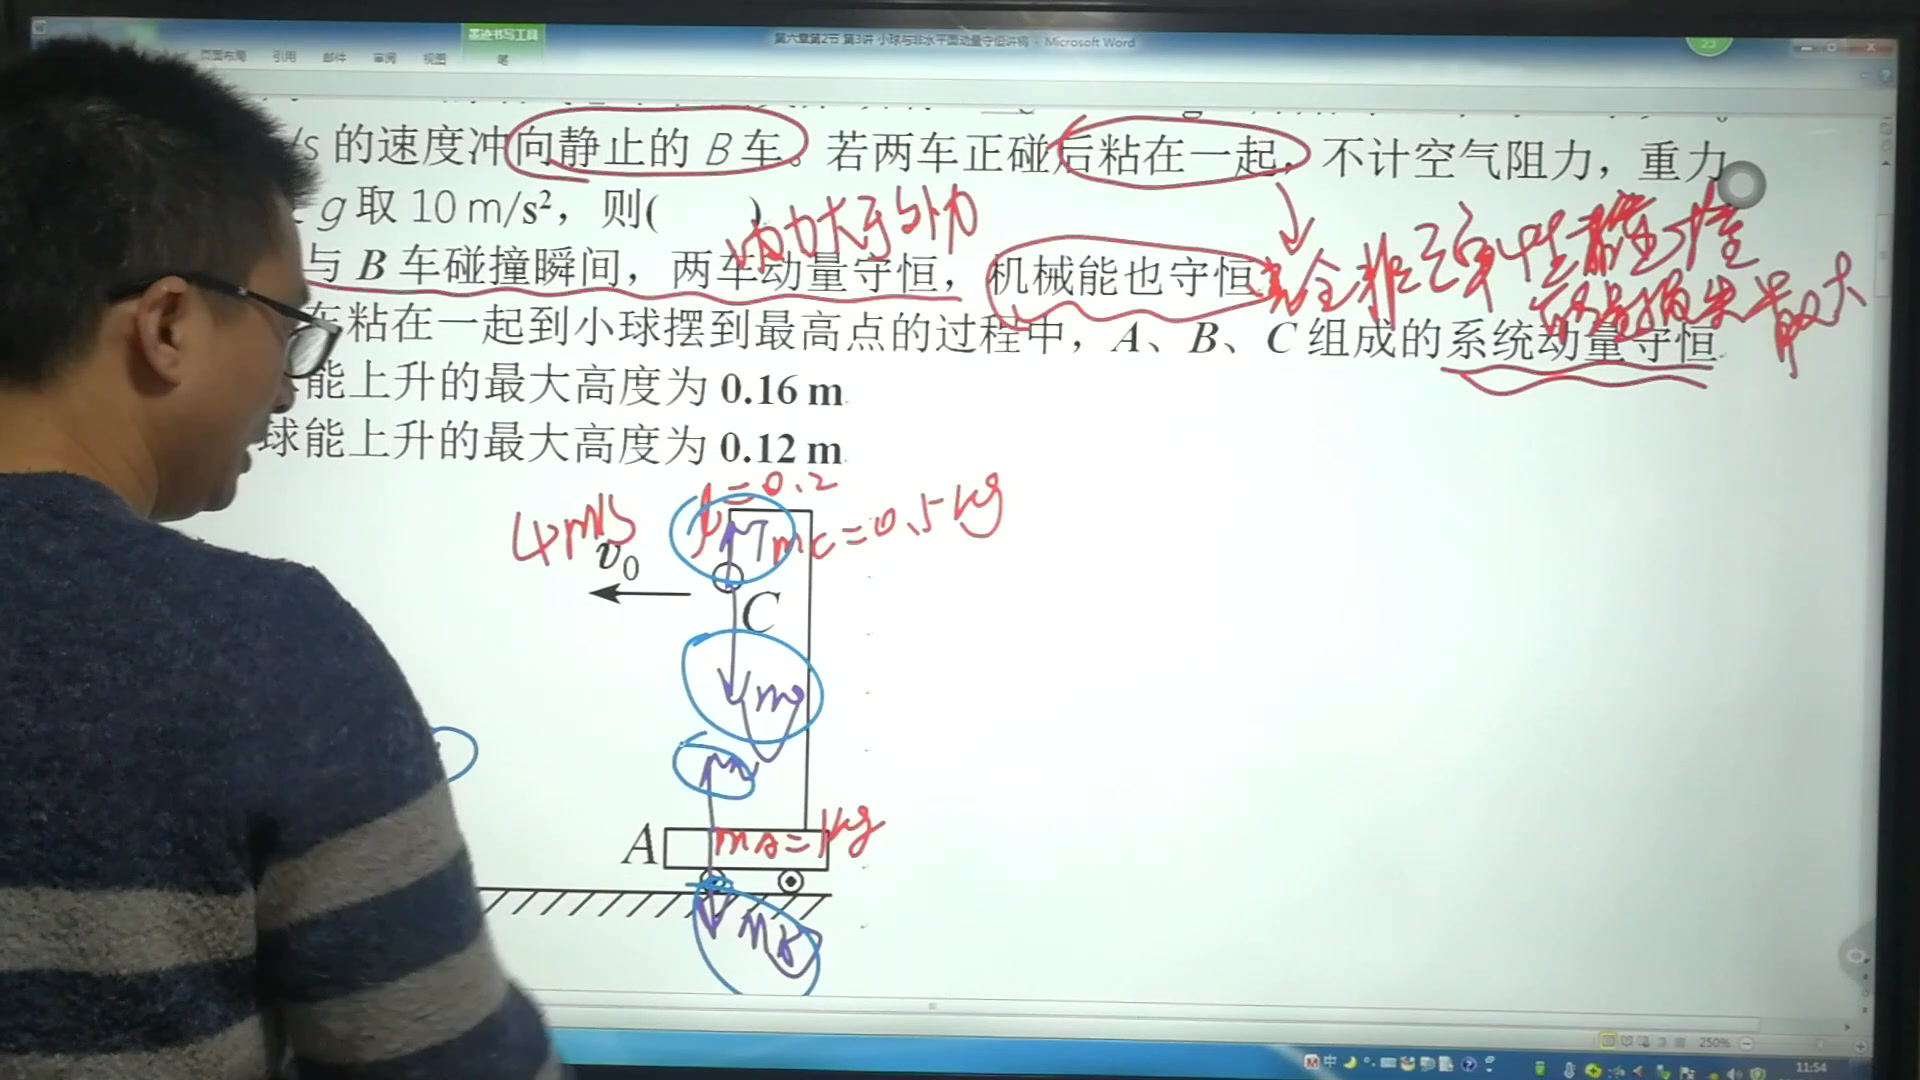 墨迹书写工具
第六章第2节 第3讲 小球与非水平面动量守恒讲稿 - Microsoft Word
23
页面布局 引用 邮件 审阅 视图 笔
/s 的速度冲向静止的 B 车。若两车正碰后粘在一起，不计空气阻力，重力
g 取 10 m/s²，则( )
内力大于外力
与 B 车碰撞瞬间，两车动量守恒，机械能也守恒
完全非弹性碰撞
能量损失最大
车粘在一起到小球摆到最高点的过程中，A、B、C 组成的系统动量守恒
能上升的最大高度为 0.16 m
球能上升的最大高度为 0.12 m
l=0.2
4m/s
mc=0.5kg
v0
T
C
mg
A
mA=1kg
250%
中
11:54